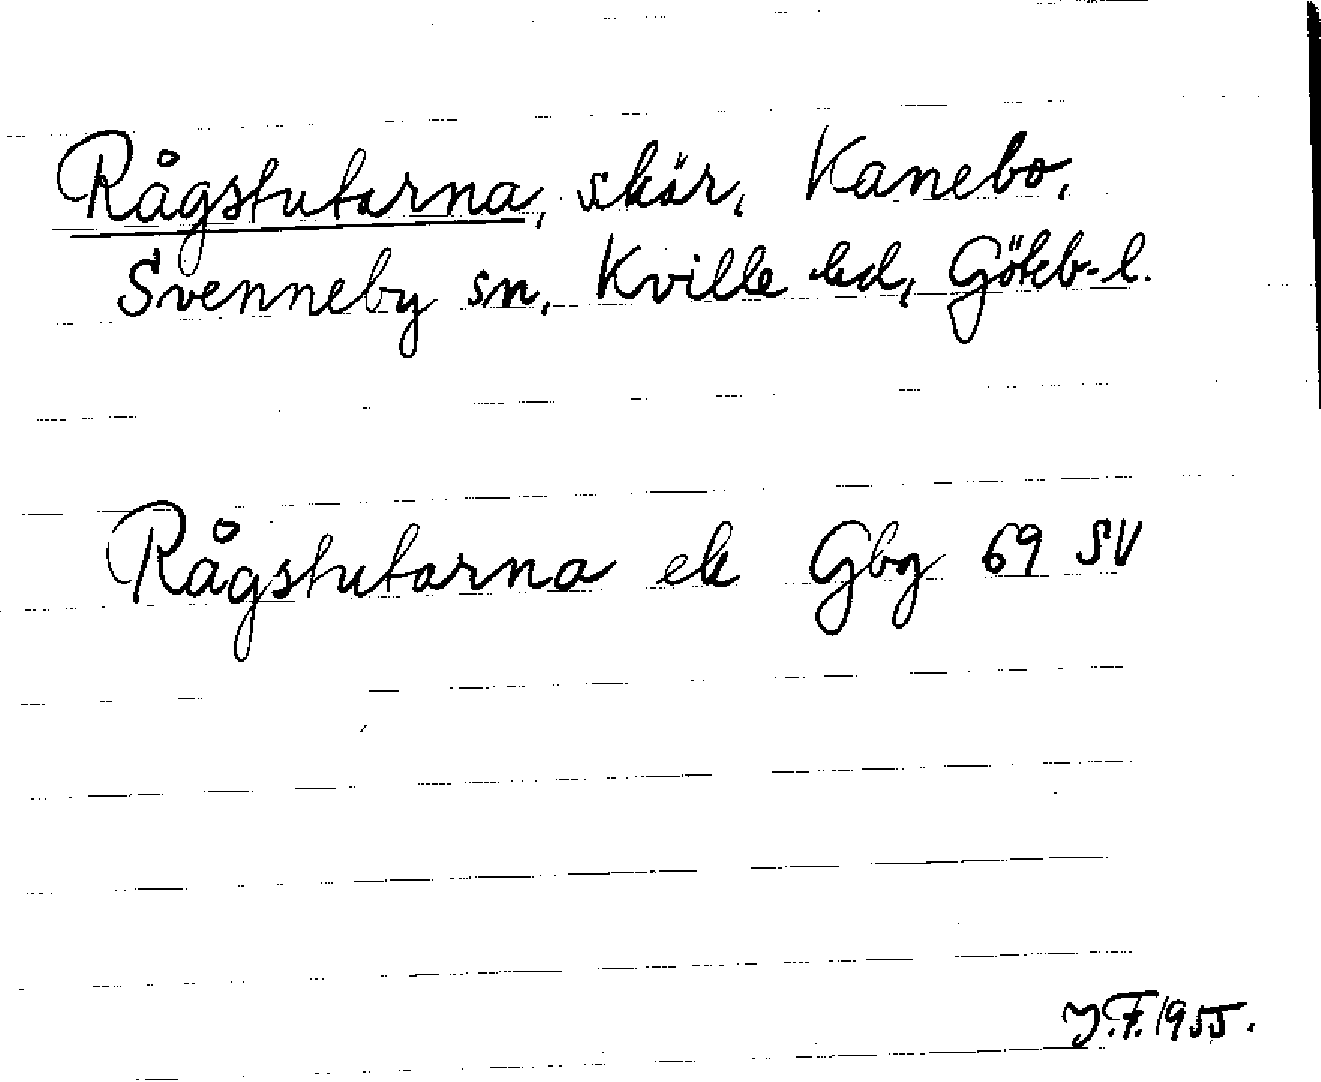 Rågstutarna, skär, Kanebo.
Svenneby sn, Kville hd, Göteb-l.
Rågstutarna ek Gbg 69 SV
J.F. 1955.